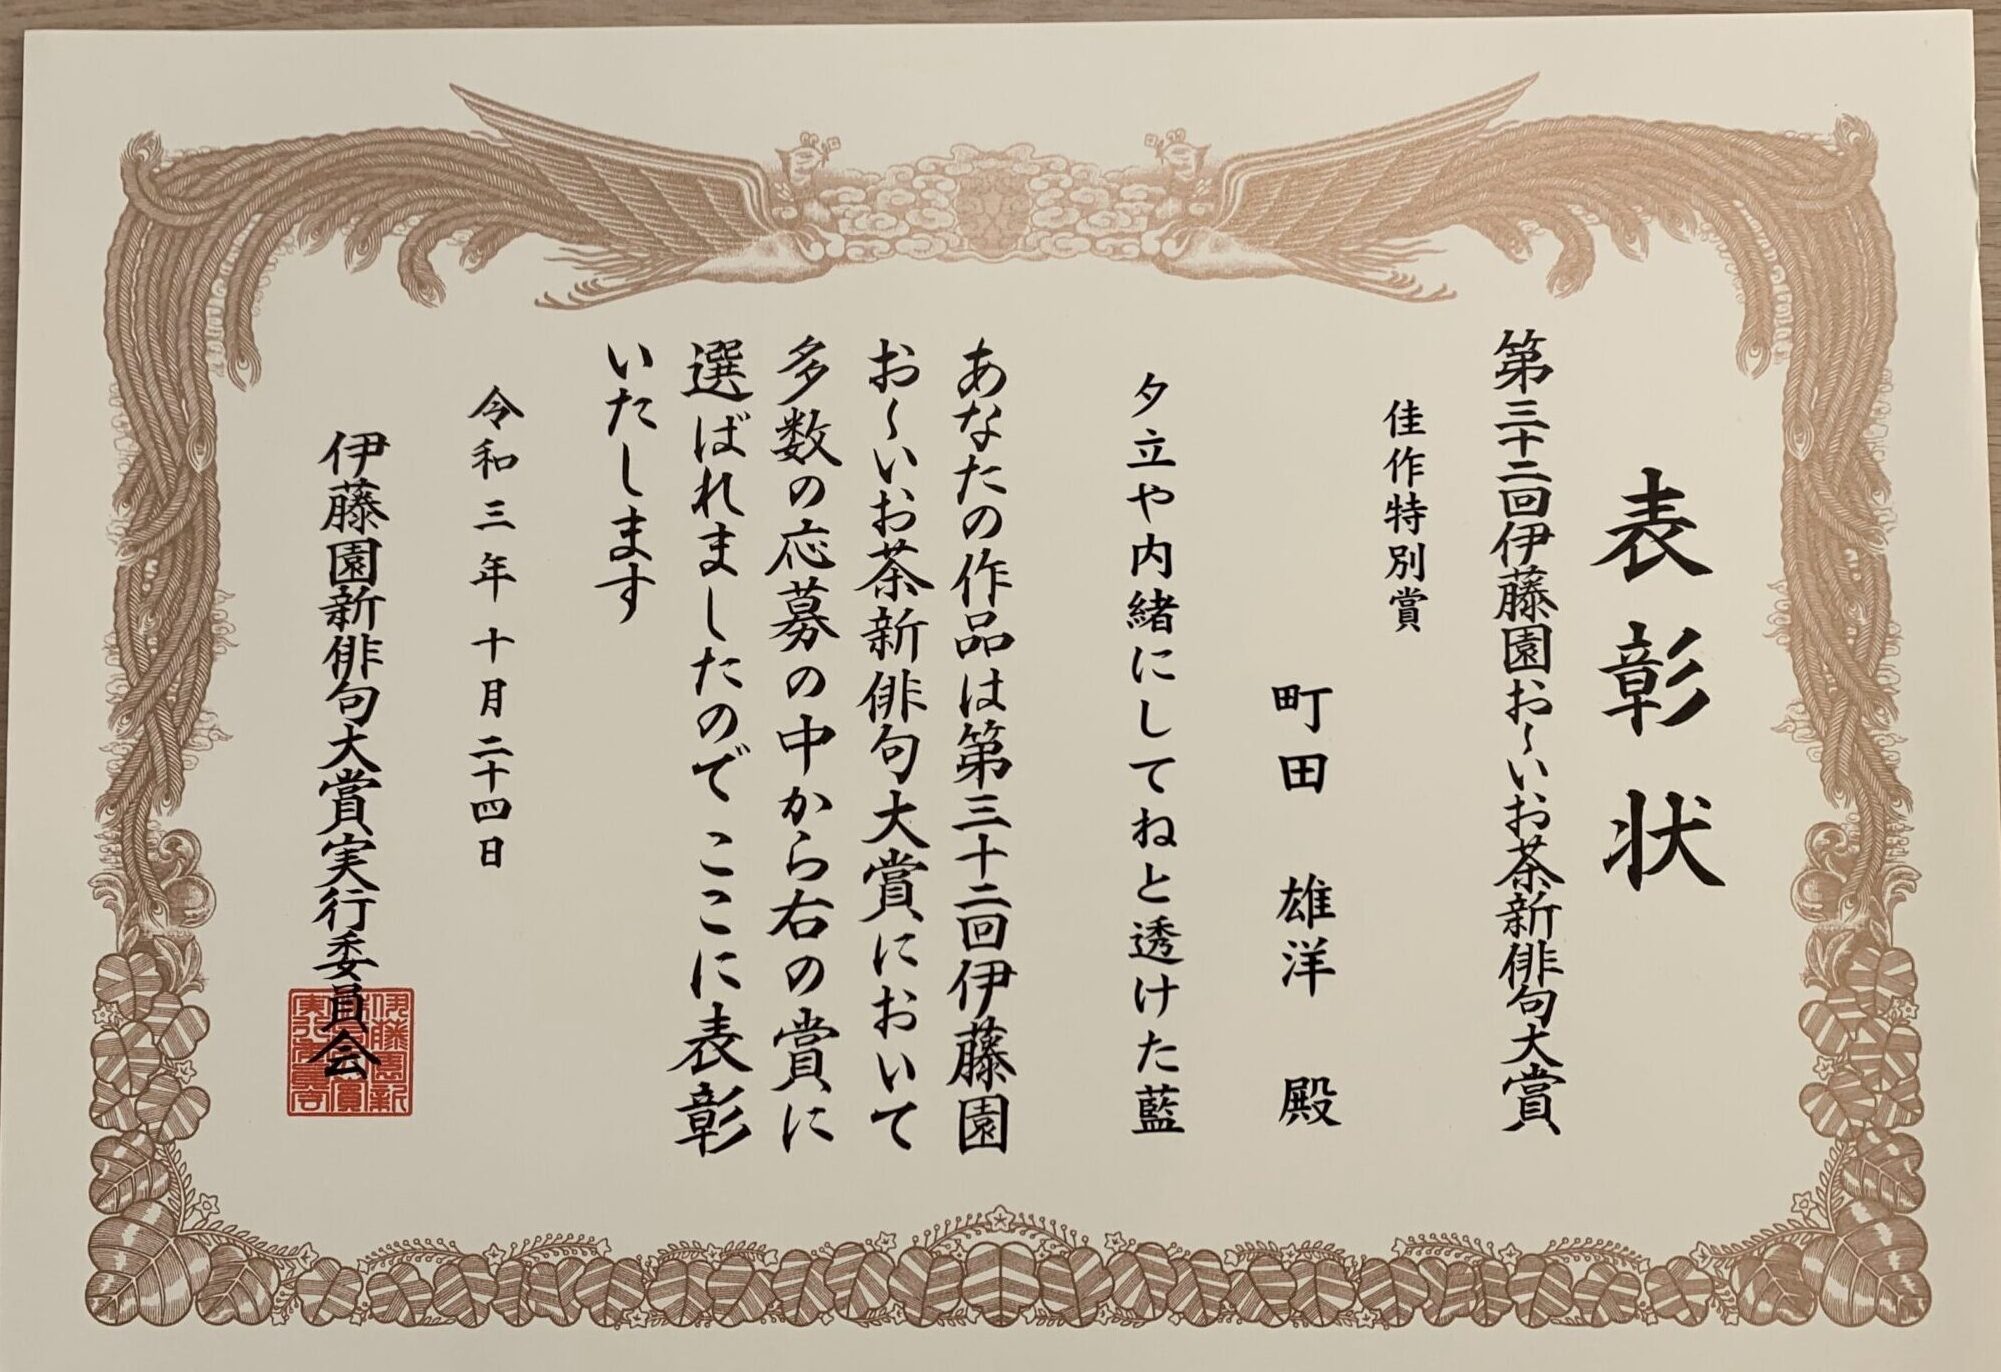 表彰状
第三十二回伊藤園お〜いお茶新俳句大賞
佳作特別賞
町田 雄洋 殿
夕立や内緒にしてねと透けた藍
あなたの作品は第三十二回伊藤園
お〜いお茶新俳句大賞において
多数の応募の中から右の賞に
選ばれましたのでここに表彰
いたします
令和三年十月二十四日
伊藤園新俳句大賞実行委員会